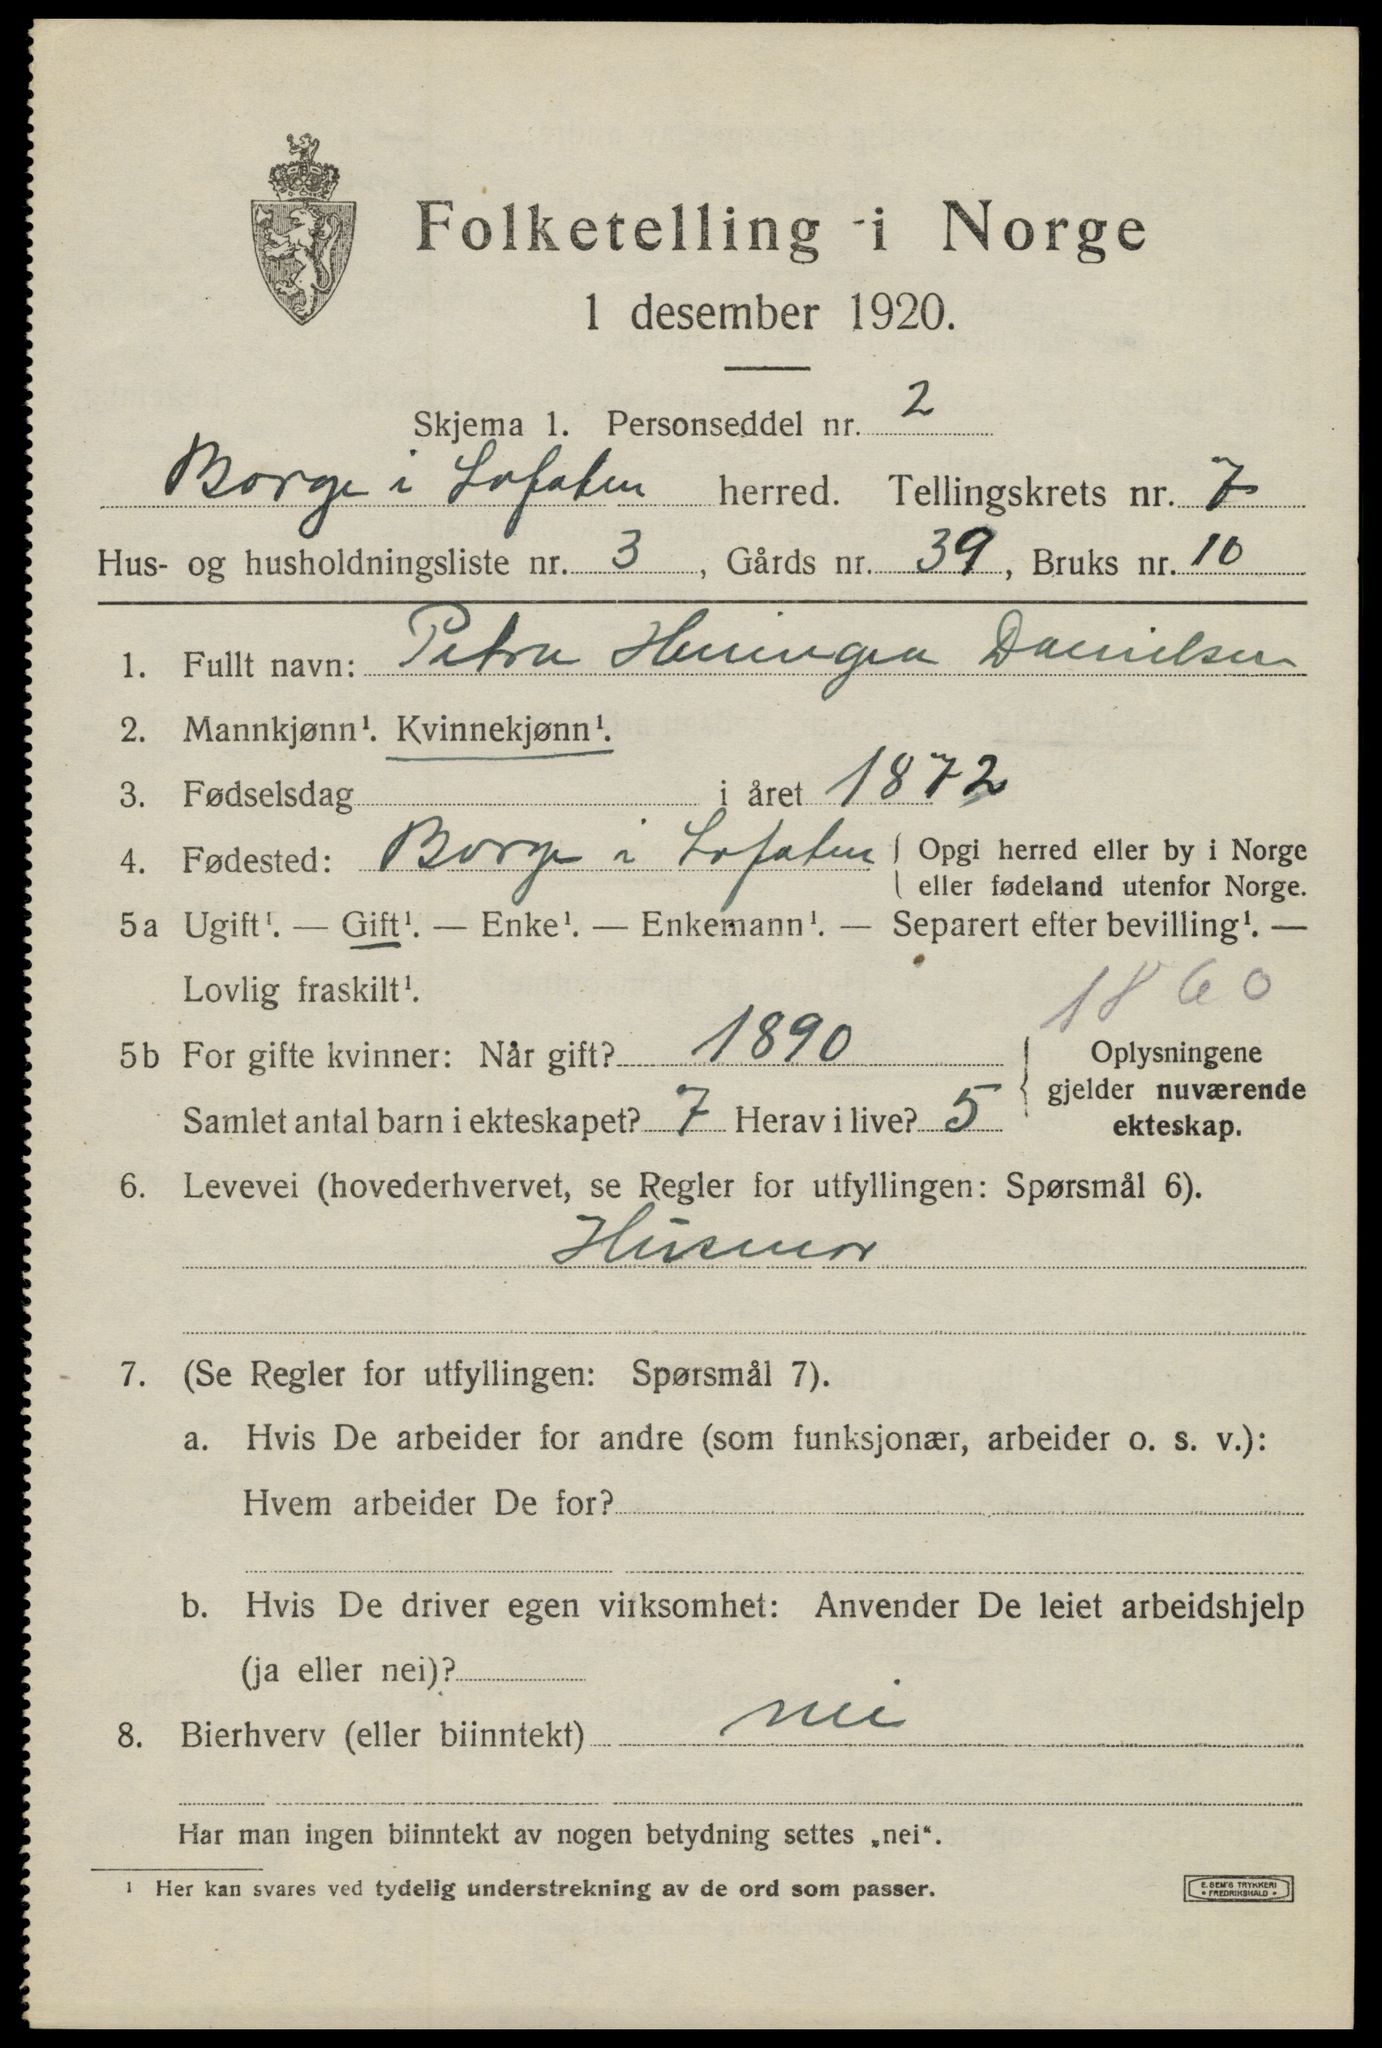 Folketelling i Norge
1 desember 1920.
Skjema 1. Personseddel nr. 2
Borge i Lofoten herred. Tellingskrets nr. 7
Hus- og husholdningsliste nr. 3, Gårds nr. 39, Bruks nr. 10
1. Fullt navn: Petra Heningea Danielsen
2. Mannkjønn¹. Kvinnekjønn¹.
3. Fødselsdag i året 1872
4. Fødested: Borge i Lofoten { Opgi herred eller by i Norge
eller fødeland utenfor Norge.
5a Ugift¹. — Gift¹. — Enke¹. — Enkemann¹. — Separert efter bevilling¹. —
Lovlig fraskilt¹.
1860
5b For gifte kvinner: Når gift? 1890
Samlet antal barn i ekteskapet? 7 Herav i live? 5
{ Oplysningene
gjelder nuværende
ekteskap.
6. Levevei (hovederhvervet, se Regler for utfyllingen: Spørsmål 6).
Husmor
7. (Se Regler for utfyllingen: Spørsmål 7).
a. Hvis De arbeider for andre (som funksjonær, arbeider o. s. v.):
Hvem arbeider De for?
b. Hvis De driver egen virksomhet: Anvender De leiet arbeidshjelp
(ja eller nei)?
8. Bierhverv (eller biinntekt) nei
Har man ingen biinntekt av nogen betydning settes „nei“.
¹ Her kan svares ved tydelig understrekning av de ord som passer.
E. SEM'S TRYKKERI
• FREDRIKSHALD •